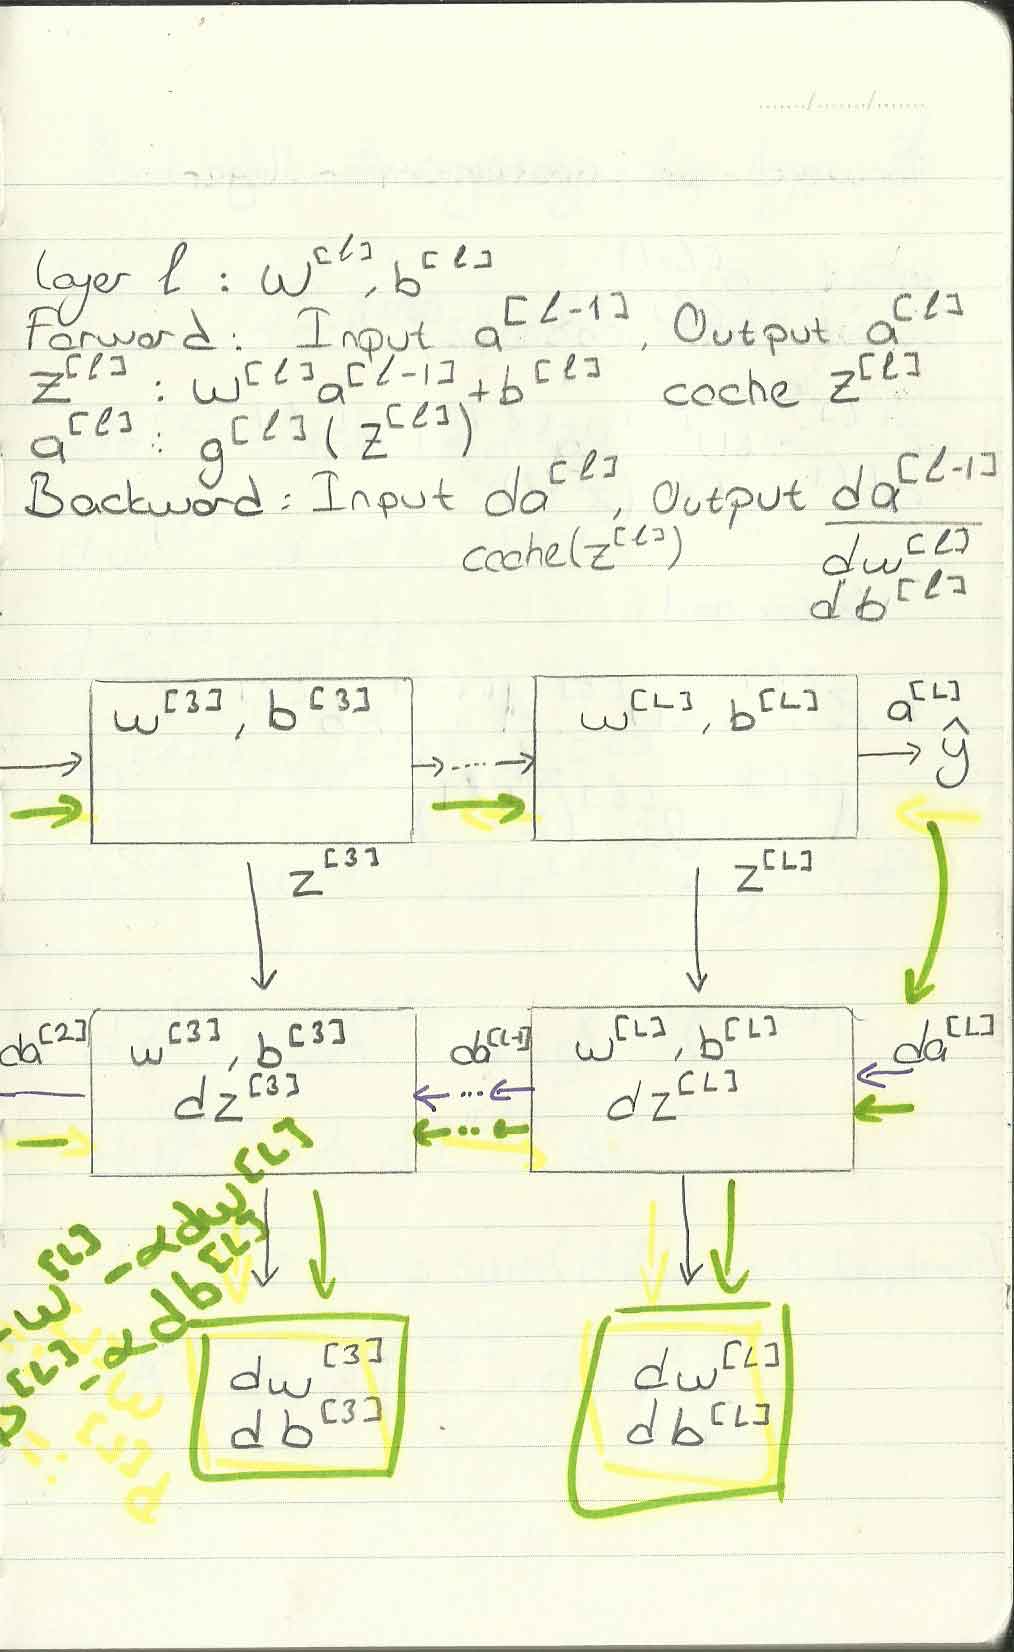 layer l : w^[l], b^[l]
Forward: Input a^[l-1], Output a^[l]
z^[l] : w^[l]a^[l-1]+b^[l] cache z^[l]
a^[l] : g^[l](z^[l])
Backward: Input da^[l], Output da^[l-1]
cache(z^[l]) dw^[l]
db^[l]
w^[3], b^[3] w^[L], b^[L] a^[L]
ŷ
z^[3] z^[L]
da^[2] w^[3], b^[3] da^[L-1] w^[L], b^[L] da^[L]
dz^[3] dz^[L]
w^[L] - αdw^[L]
b^[L] - αdb^[L]
dw^[3] dw^[L]
db^[3] db^[L]